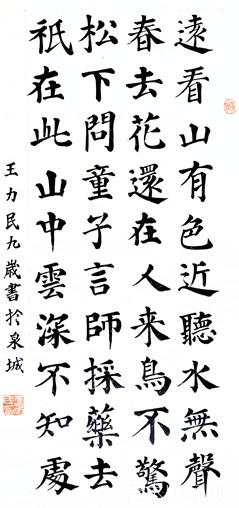 遠看山有色近聽水無聲
春去花還在人来鳥不驚
松下問童子言師採藥去
祇在此山中雲深不知處
王力民九歲書於泉城